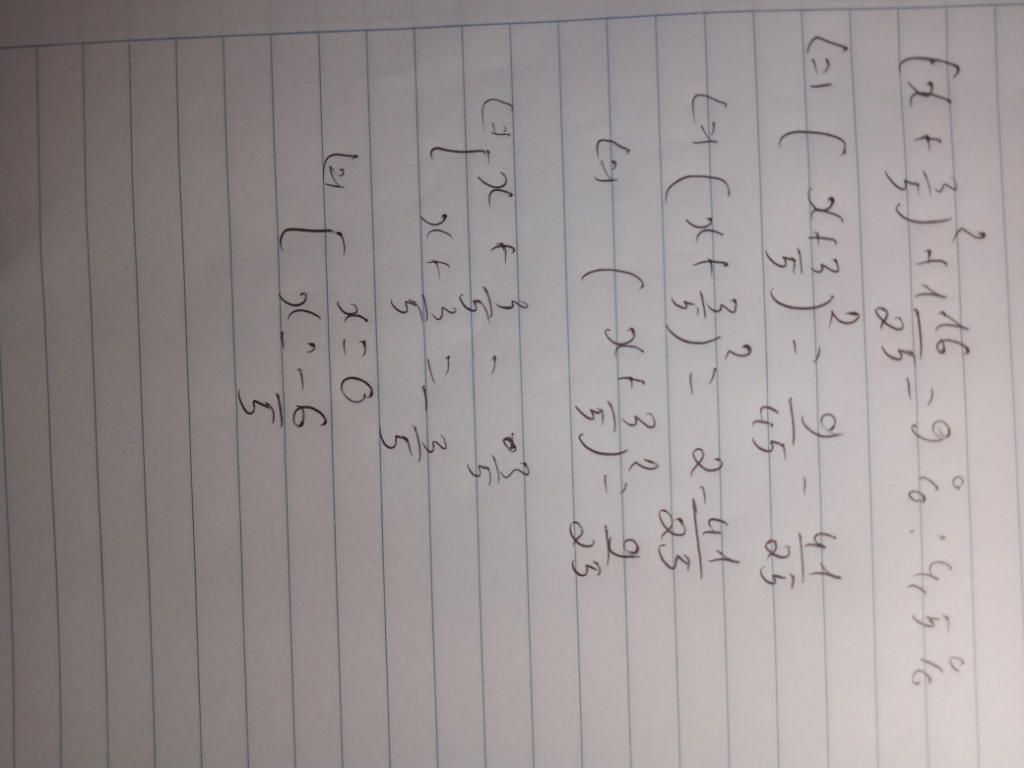 (x + 3/5)² + 1 16/25 = 9% : 4,5%
<=> (x + 3/5)² = 9/45 - 41/25
<=> (x + 3/5)² = 2 - 41/25
<=> (x + 3/5)² = 9/25
<=> [ x + 3/5 = 3/5
x + 3/5 = -3/5
<=> [ x = 0
x = -6/5